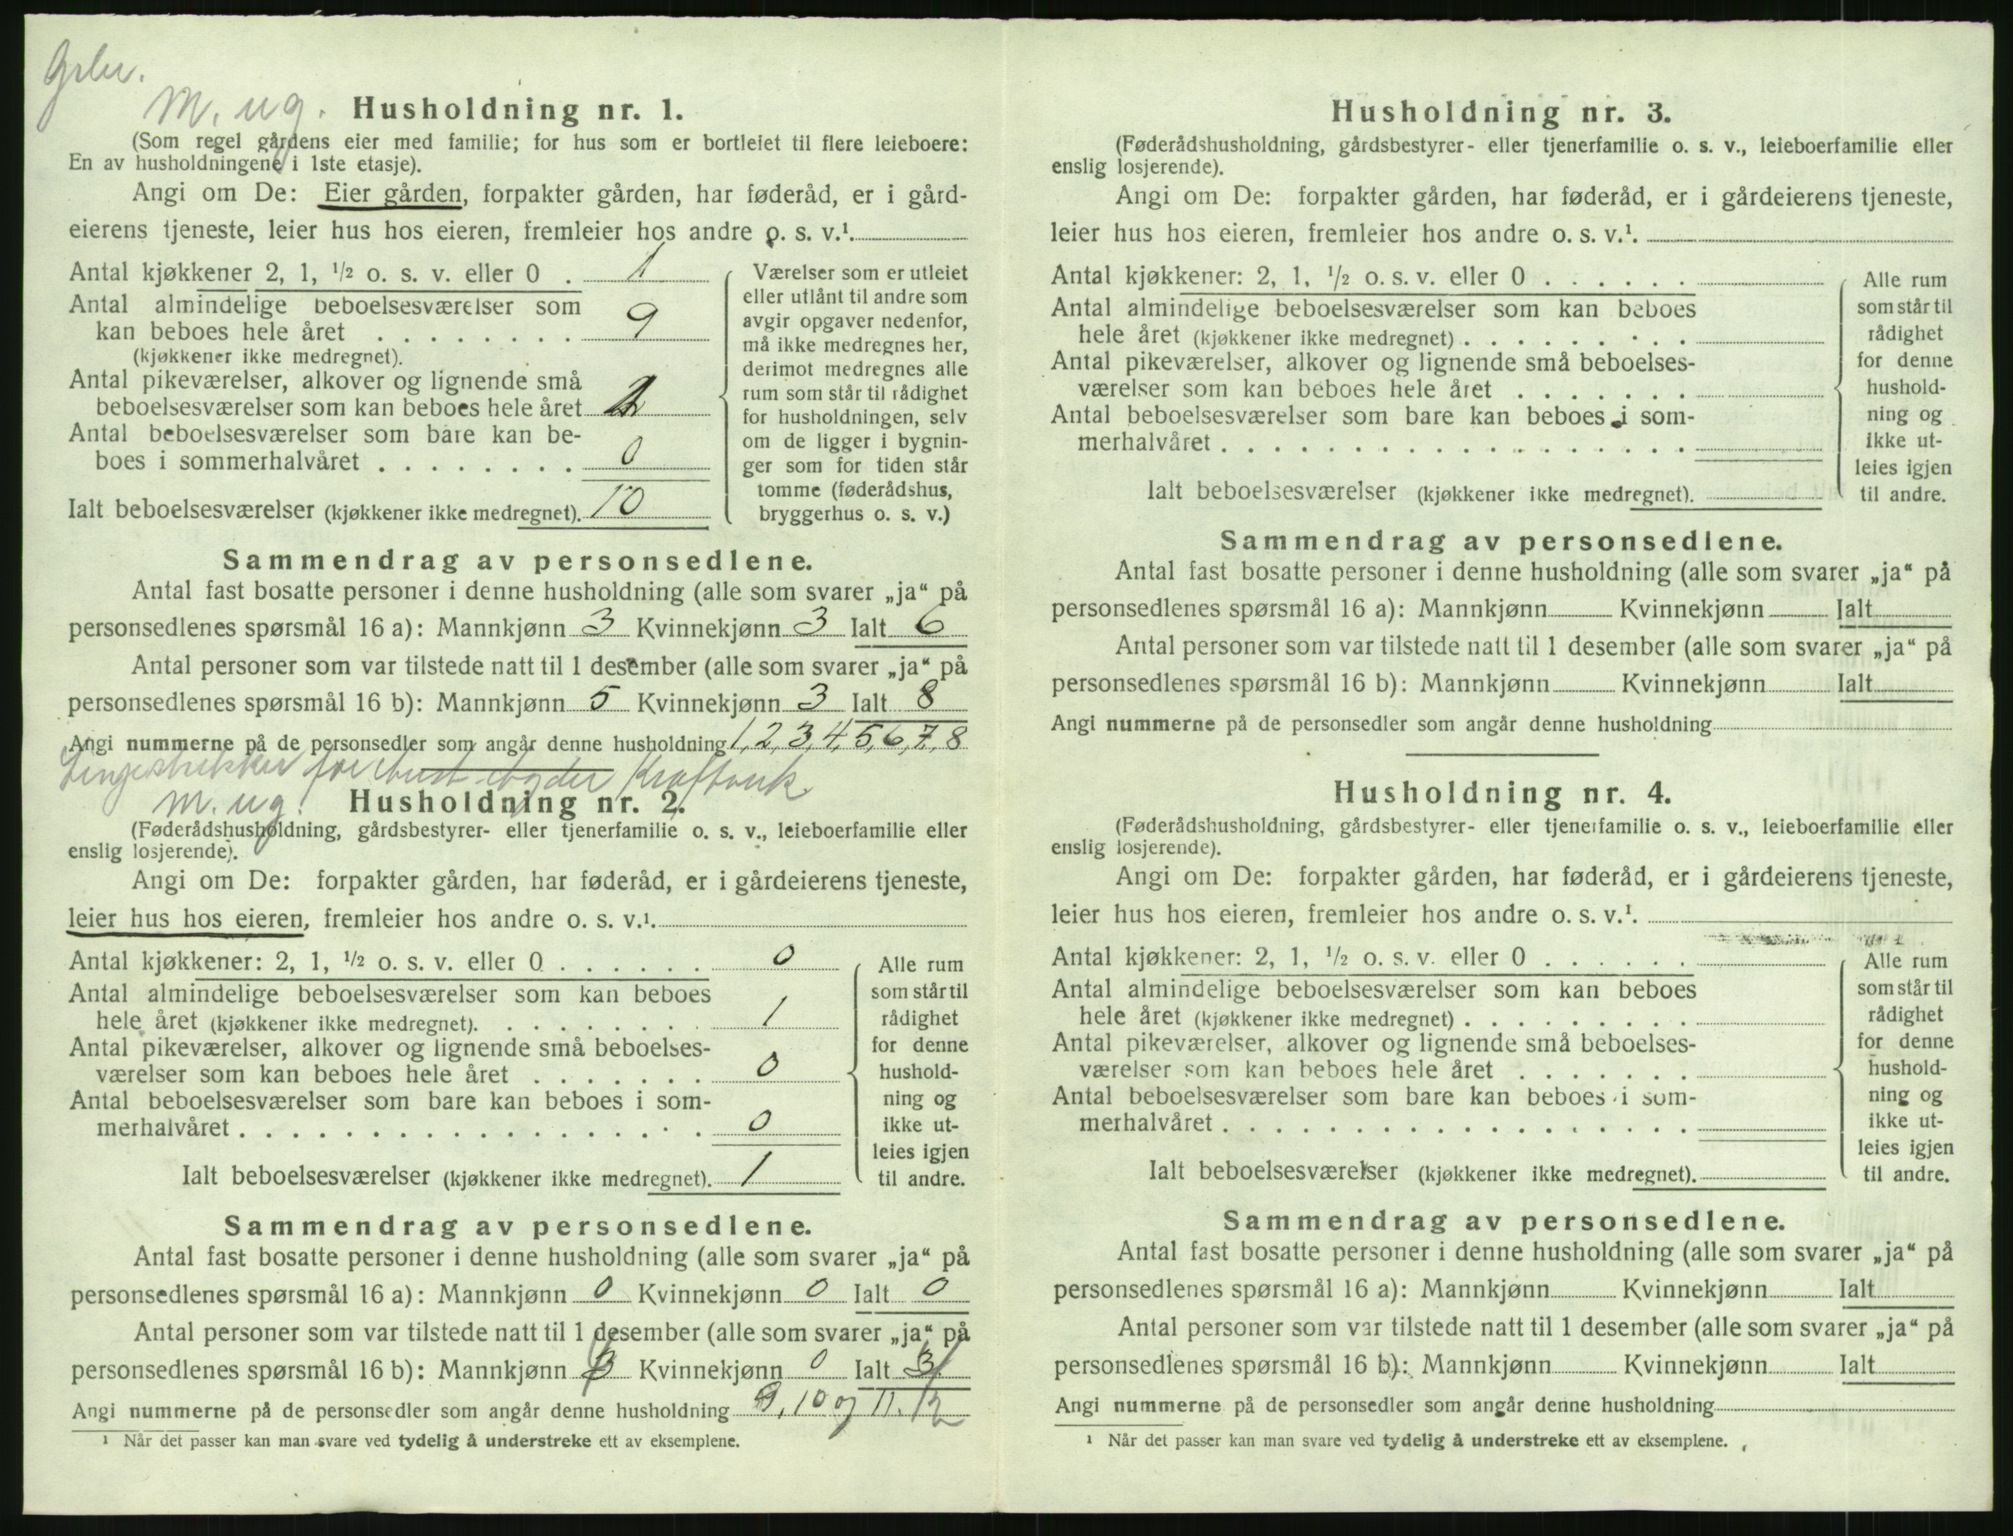 Grbr.
M. ug. Husholdning nr. 1.
(Som regel gårdens eier med familie; for hus som er bortleiet til flere leieboere:
En av husholdningene i 1ste etasje).
Angi om De: Eier gården, forpakter gården, har føderåd, er i gård-
eierens tjeneste, leier hus hos eieren, fremleier hos andre o. s. v.¹.
Antal kjøkkener 2, 1, 1/2 o. s. v. eller 0 . 1
Antal almindelige beboelsesværelser som
kan beboes hele året . . . . . . . . 9
(kjøkkener ikke medregnet).
Antal pikeværelser, alkover og lignende små
beboelsesværelser som kan beboes hele året
Antal beboelsesværelser som bare kan be-
boes i sommerhalvåret . . . . . . . . 0
Ialt beboelsesværelser (kjøkkener ikke medregnet). 10
Værelser som er utleiet
eller utlånt til andre som
avgir opgaver nedenfor,
må ikke medregnes her,
derimot medregnes alle
rum som står til rådighet
for husholdningen, selv
om de ligger i bygnin-
ger som for tiden står
tomme (føderådshus,
bryggerhus o. s. v.)
Sammendrag av personsedlene.
Antal fast bosatte personer i denne husholdning (alle som svarer „ja“ på
personsedlenes spørsmål 16 a): Mannkjønn 3 Kvinnekjønn 3 Ialt 6
Antal personer som var tilstede natt til 1 desember (alle som svarer „ja“ på
personsedlenes spørsmål 16 b): Mannkjønn 5 Kvinnekjønn 3 Ialt 8
Angi nummerne på de personsedler som angår denne husholdning 1, 2, 3, 4, 5, 6, 7, 8
Kraftverk
M. ug. Husholdning nr. 2.
(Føderådshusholdning, gårdsbestyrer- eller tjenerfamilie o. s. v., leieboerfamilie eller
enslig losjerende).
Angi om De: forpakter gården, har føderåd, er i gårdeierens tjeneste,
leier hus hos eieren, fremleier hos andre o. s. v.¹.
Antal kjøkkener: 2, 1, 1/2 o. s. v. eller 0 . . . . . . 0
Antal almindelige beboelsesværelser som kan beboes
hele året (kjøkkener ikke medregnet). . . . . . . . . 1
Antal pikeværelser, alkover og lignende små beboelses-
værelser som kan beboes hele året . . . . . . . 0
Antal beboelsesværelser som bare kan beboes i som-
merhalvåret . . . . . . . . . . . . . . . . . . 0
Ialt beboelsesværelser (kjøkkener ikke medregnet). 1
Alle rum
som står til
rådighet
for denne
hushold-
ning og
ikke ut-
leies igjen
til andre.
Sammendrag av personsedlene.
Antal fast bosatte personer i denne husholdning (alle som svarer „ja“ på
personsedlenes spørsmål 16 a): Mannkjønn 0 Kvinnekjønn 0 Ialt 0
Antal personer som var tilstede natt til 1 desember (alle som svarer „ja“ på
personsedlenes spørsmål 16 b): Mannkjønn 3 Kvinnekjønn 0 Ialt 3
Angi nummerne på de personsedler som angår denne husholdning 9, 10 og 11. 12
¹ Når det passer kan man svare ved tydelig å understreke ett av eksemplene.
Husholdning nr. 3.
(Føderådshusholdning, gårdsbestyrer- eller tjenerfamilie o. s. v., leieboerfamilie eller
enslig losjerende).
Angi om De: forpakter gården, har føderåd, er i gårdeierens tjeneste,
leier hus hos eieren, fremleier hos andre o. s. v.¹.
Antal kjøkkener: 2, 1, 1/2 o. s. v. eller 0 . . . . . .
Antal almindelige beboelsesværelser som kan beboes
hele året (kjøkkener ikke medregnet) . . . . . . . . .
Antal pikeværelser, alkover og lignende små beboelses-
værelser som kan beboes hele året . . . . . . .
Antal beboelsesværelser som bare kan beboes i som-
merhalvåret . . . . . . . . . . . . . . . . . .
Ialt beboelsesværelser (kjøkkener ikke medregnet).
Alle rum
som står til
rådighet
for denne
hushold-
ning og
ikke ut-
leies igjen
til andre.
Sammendrag av personsedlene.
Antal fast bosatte personer i denne husholdning (alle som svarer „ja“ på
personsedlenes spørsmål 16 a): Mannkjønn Kvinnekjønn Ialt
Antal personer som var tilstede natt til 1 desember (alle som svarer „ja“ på
personsedlenes spørsmål 16 b): Mannkjønn Kvinnekjønn Ialt
Angi nummerne på de personsedler som angår denne husholdning
Husholdning nr. 4.
(Føderådshusholdning, gårdsbestyrer- eller tjenerfamilie o. s. v., leieboerfamilie eller
enslig losjerende).
Angi om De: forpakter gården, har føderåd, er i gårdeierens tjeneste,
leier hus hos eieren, fremleier hos andre o. s. v.¹.
Antal kjøkkener: 2, 1, 1/2 o. s. v. eller 0 . . . . . .
Antal almindelige beboelsesværelser som kan beboes
hele året (kjøkkener ikke medregnet) . . . . . . . . .
Antal pikeværelser, alkover og lignende små beboelses-
værelser som kan beboes hele året . . . . . . .
Antal beboelsesværelser som bare kan beboes i som-
merhalvåret . . . . . . . . . . . . . . . . . .
Ialt beboelsesværelser (kjøkkener ikke medregnet).
Alle rum
som står til
rådighet
for denne
hushold-
ning og
ikke ut-
leies igjen
til andre.
Sammendrag av personsedlene.
Antal fast bosatte personer i denne husholdning (alle som svarer „ja“ på
personsedlenes spørsmål 16 a): Mannkjønn Kvinnekjønn Ialt
Antal personer som var tilstede natt til 1 desember (alle som svarer „ja“ på
personsedlenes spørsmål 16 b): Mannkjønn Kvinnekjønn Ialt
Angi nummerne på de personsedler som angår denne husholdning
¹ Når det passer kan man svare ved tydelig å understreke ett av eksemplene.